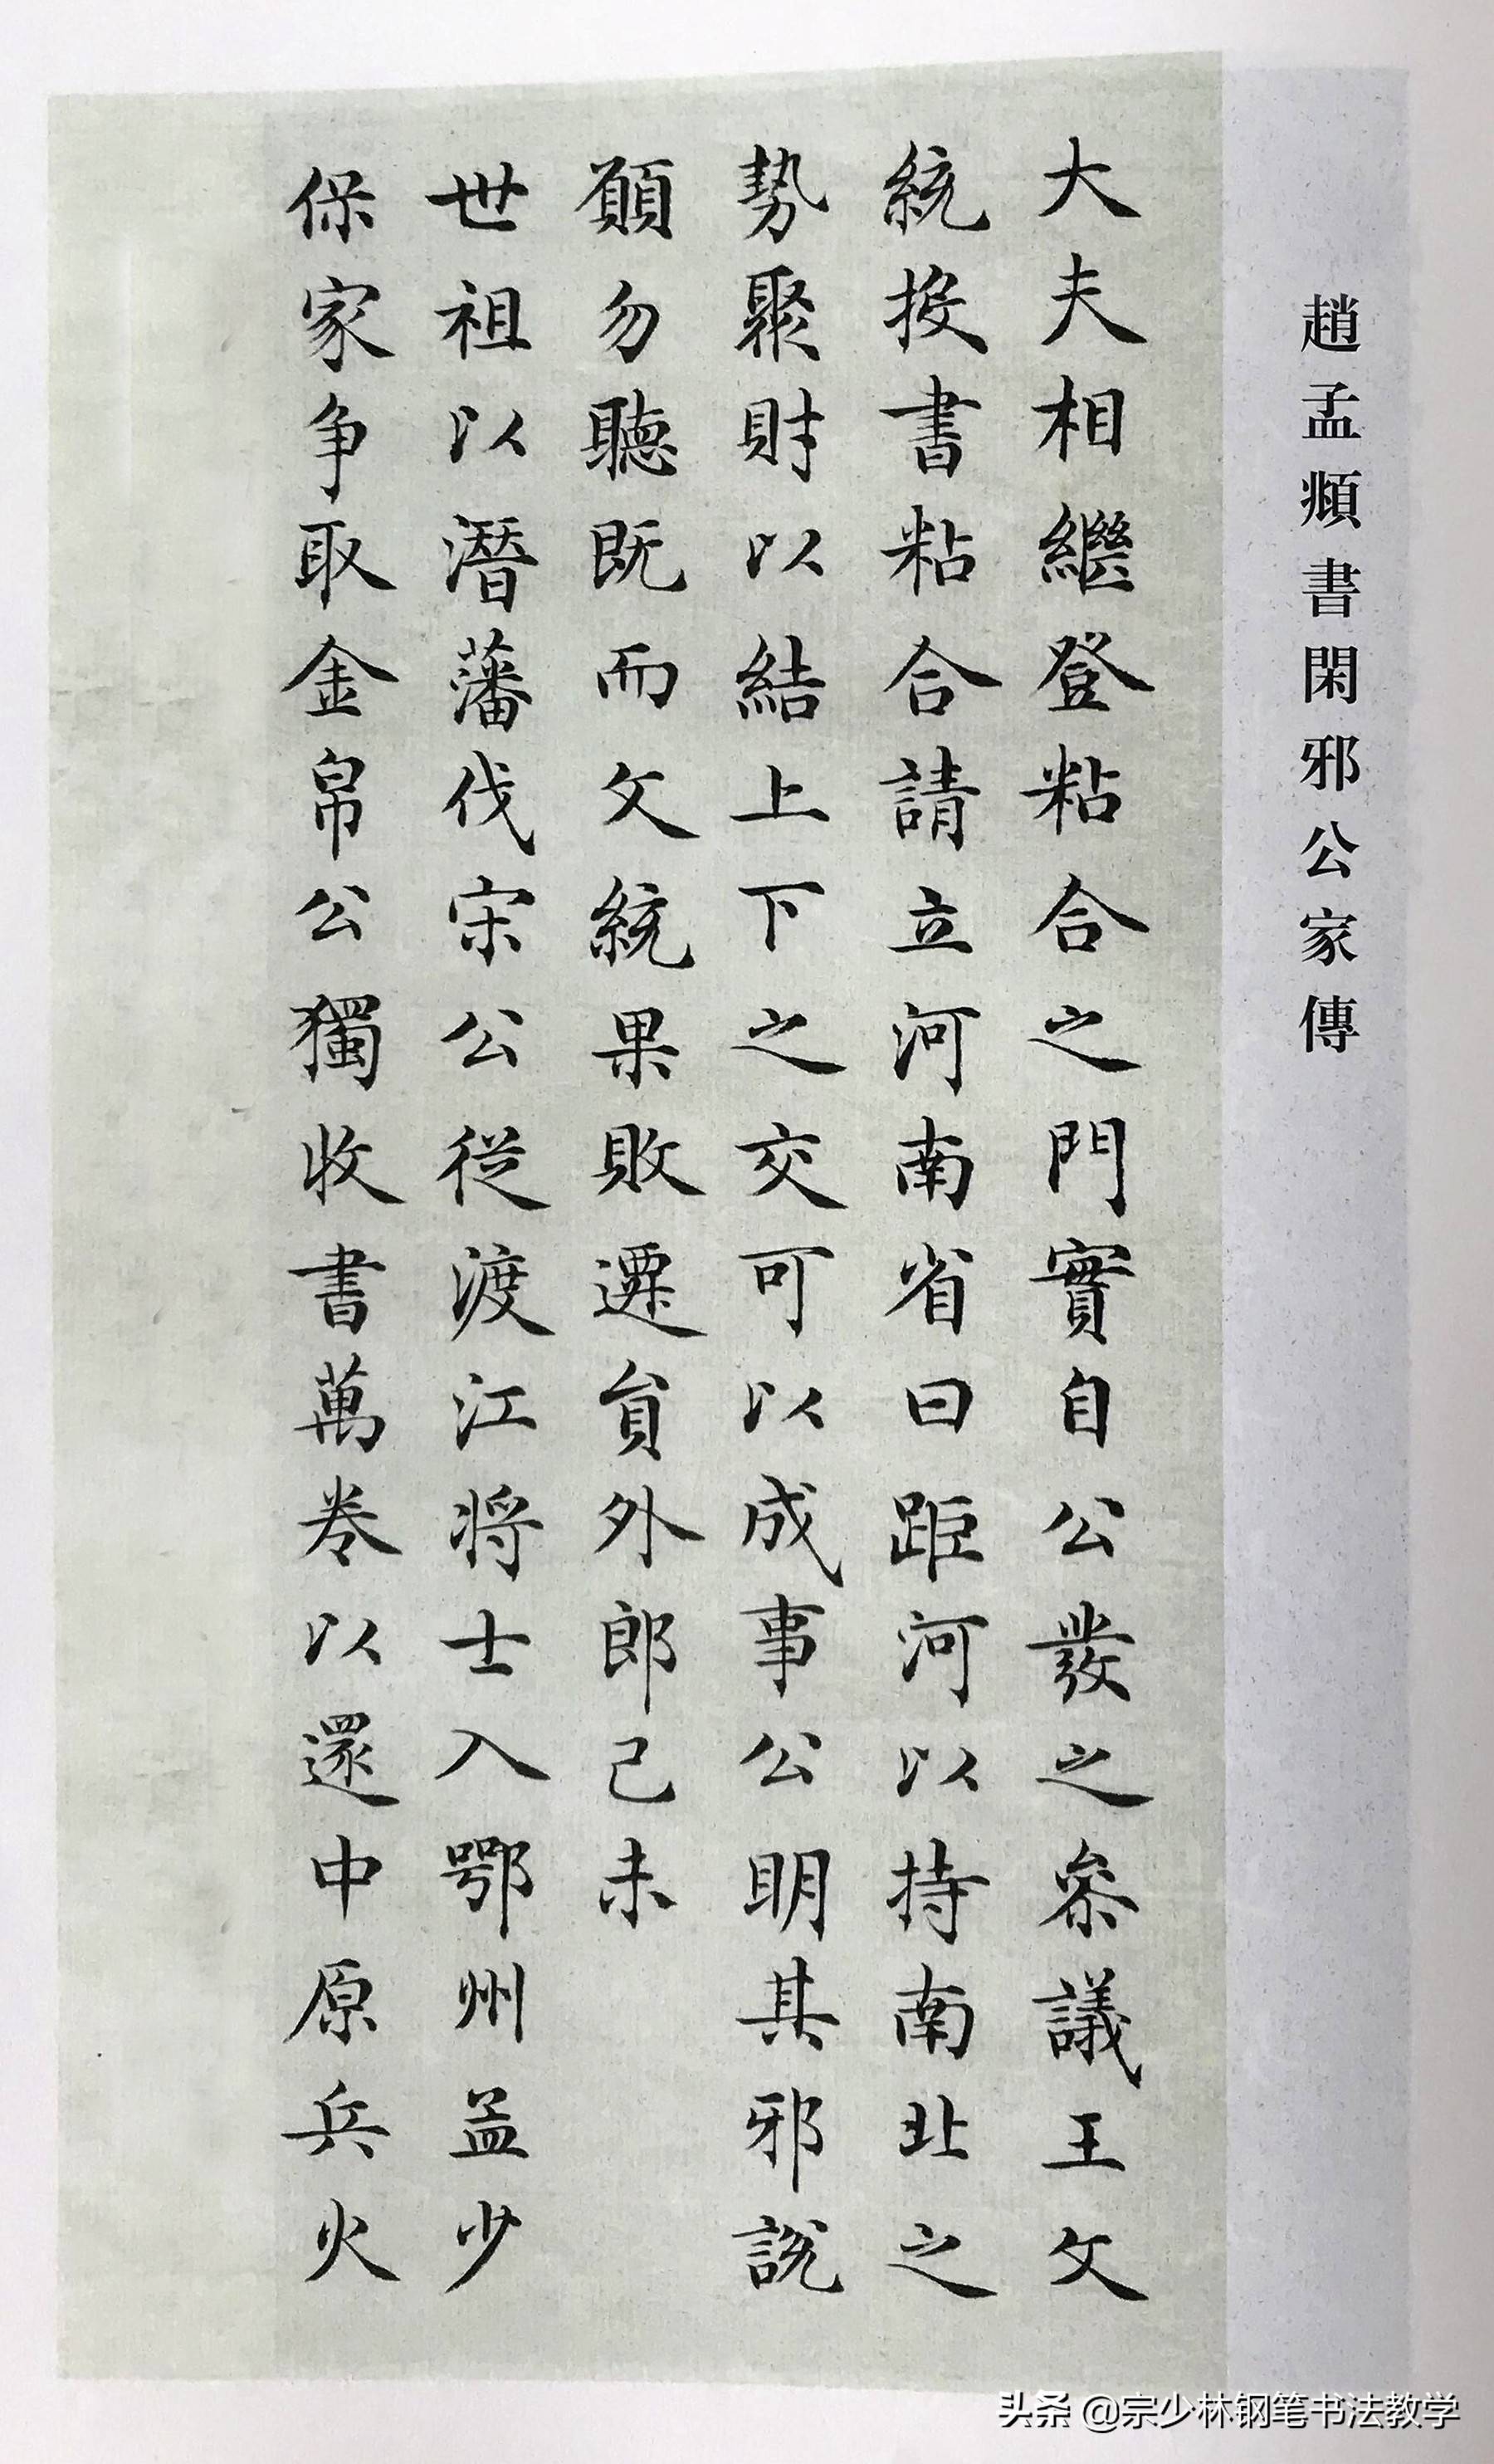 趙孟頫書閑邪公家傳
大夫相繼登粘合之門實自公發之叅議王文
統投書粘合請立河南省曰距河以持南北之
勢聚財以結上下之交可以成事公明其邪說
願勿聽既而文統果敗遷貟外郎己未
世祖以潛藩伐宋公從渡江将士入鄂州盖少
保家争取金帛公獨收書萬卷以還中原兵火
头条 @宗少林钢笔书法教学